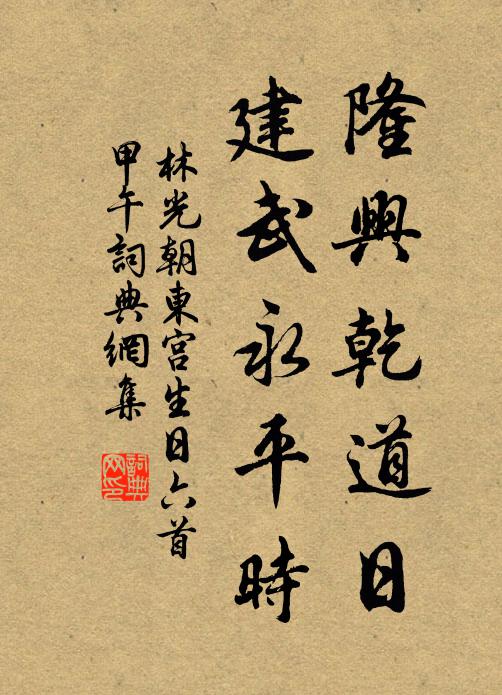 隆興乾道日
建武永平時
林光朝東宮生日六首
甲午詞典網集
詞典网印